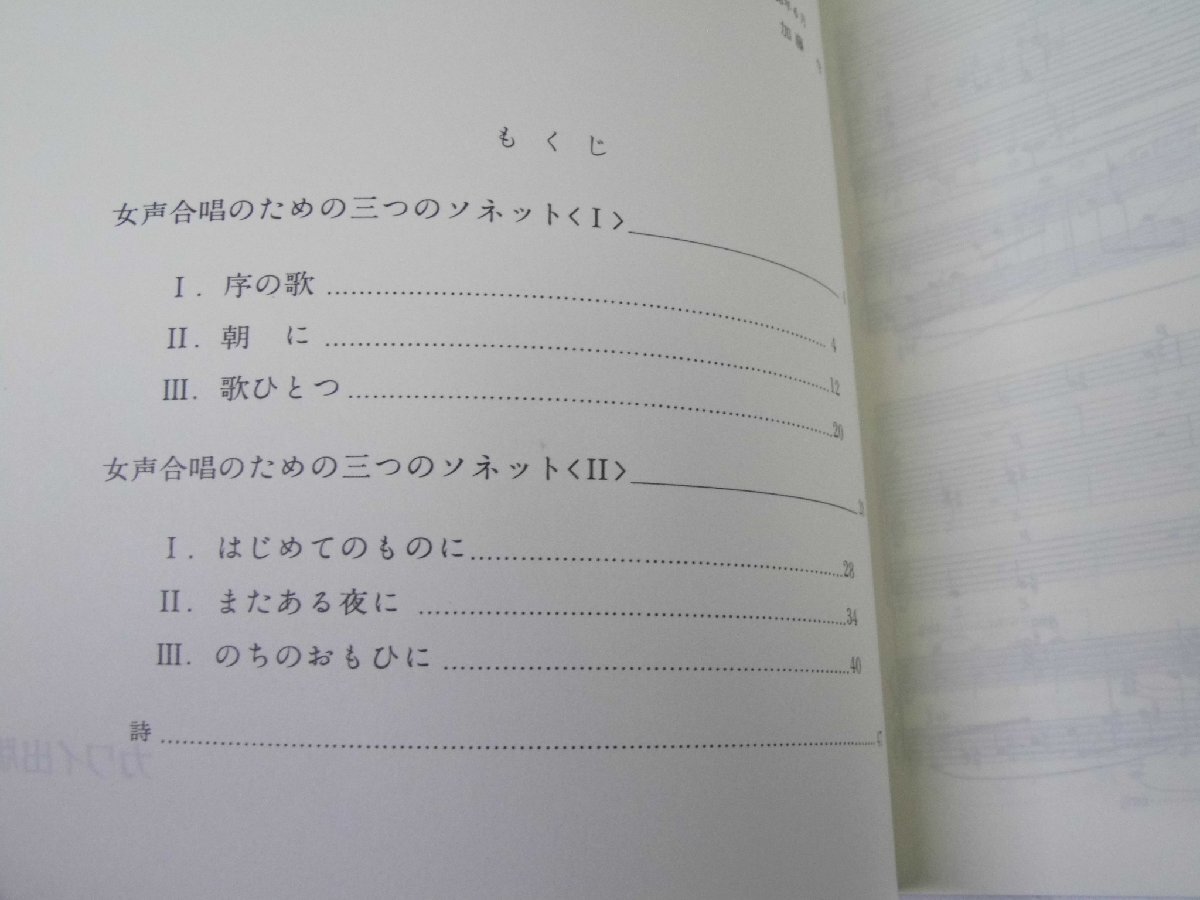 加藤
もくじ
女声合唱のための三つのソネット〈I〉
I. 序の歌 4
II. 朝 に 12
III. 歌ひとつ 20
女声合唱のための三つのソネット〈II〉
I. はじめてのものに 28
II. またある夜に 34
III. のちのおもひに 40
詩
カワイ出版